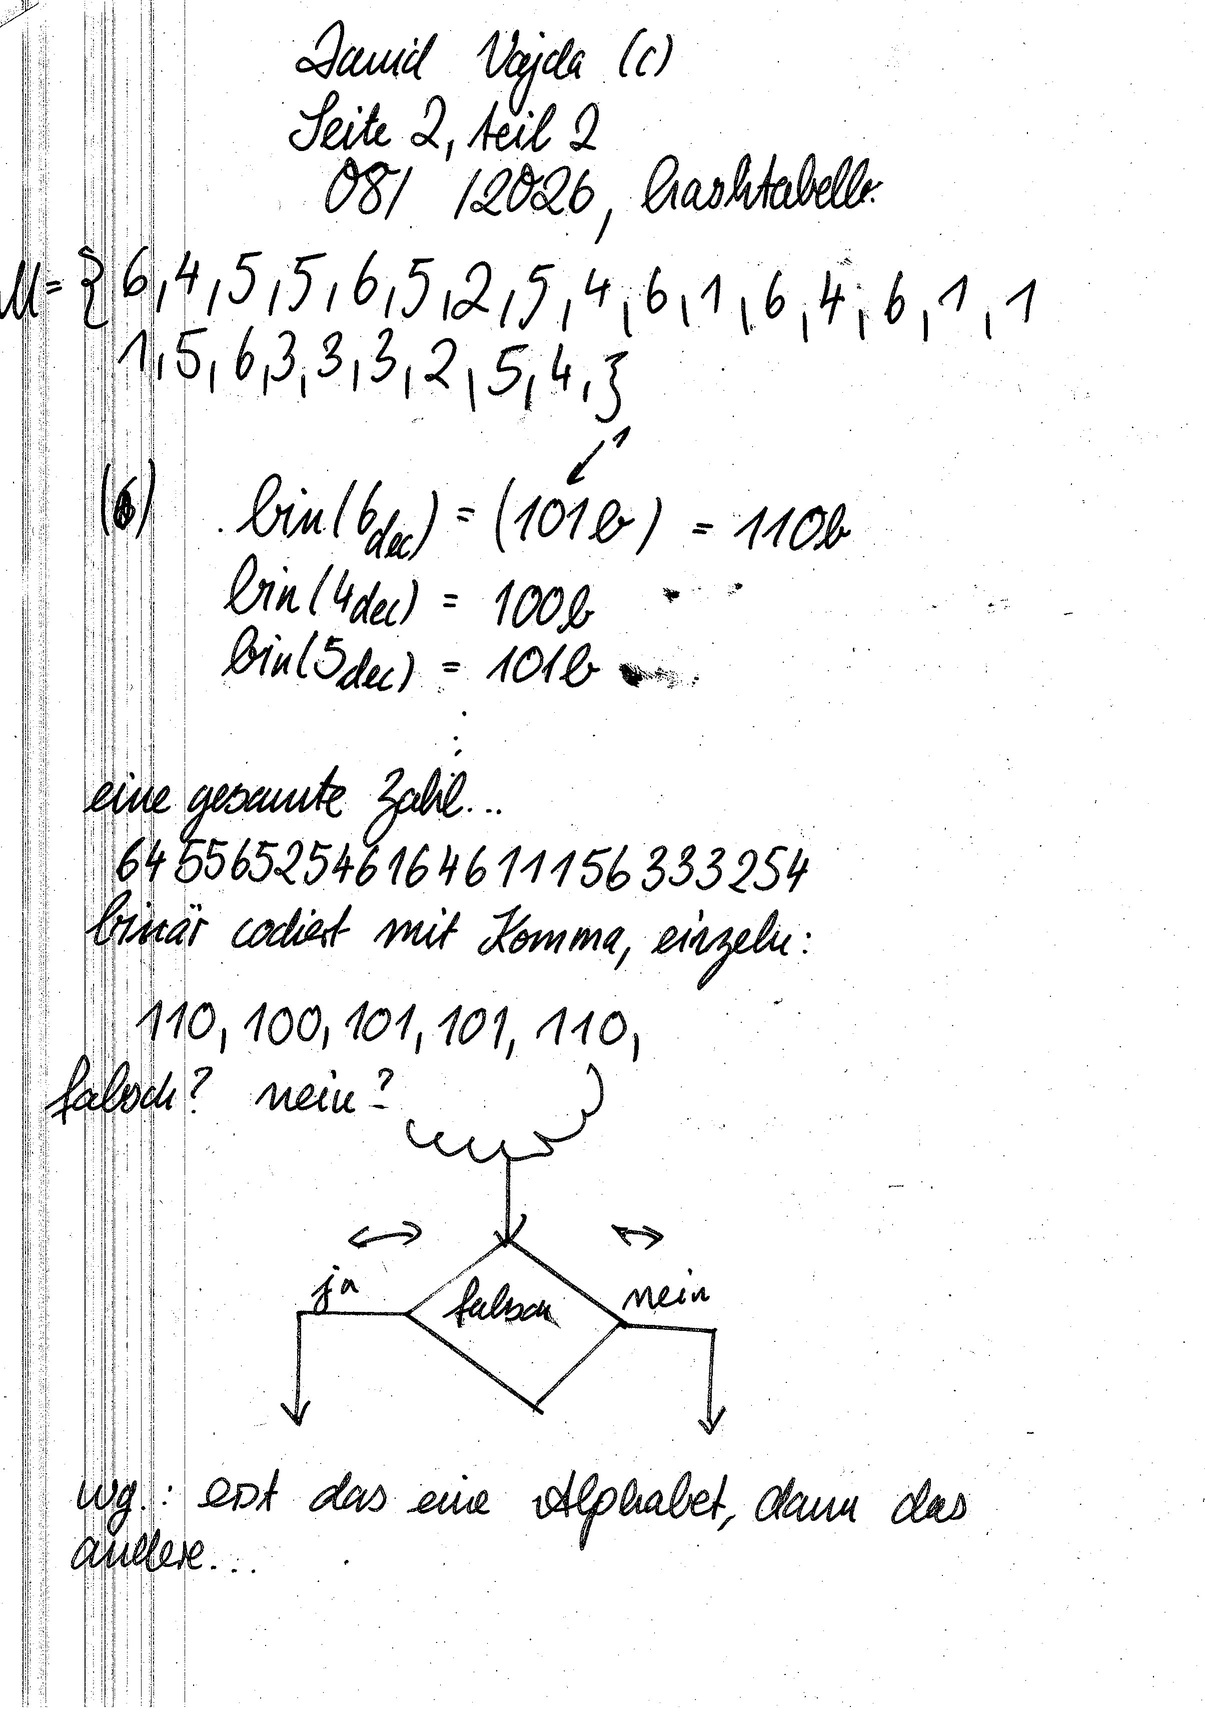 David Vajda (c)
Seite 2, teil 2
08/ /2026, hashtabelle
M = { 6,4,5,5,6,5,2,5,4,6,1,6,4,6,1,1
1,5,6,3,3,3,2,5,4,}
1
(6) bin(6dec) = (101b) = 110b
bin(4dec) = 100b
bin(5dec) = 101b
:
eine gesamte Zahl...
6455652546164611156333254
binär codiert mit Komma, einzeln:
110, 100, 101, 101, 110,
falsch? nein?
ja falsch nein
wg.: erst das eine Alphabet, dann das
andere...